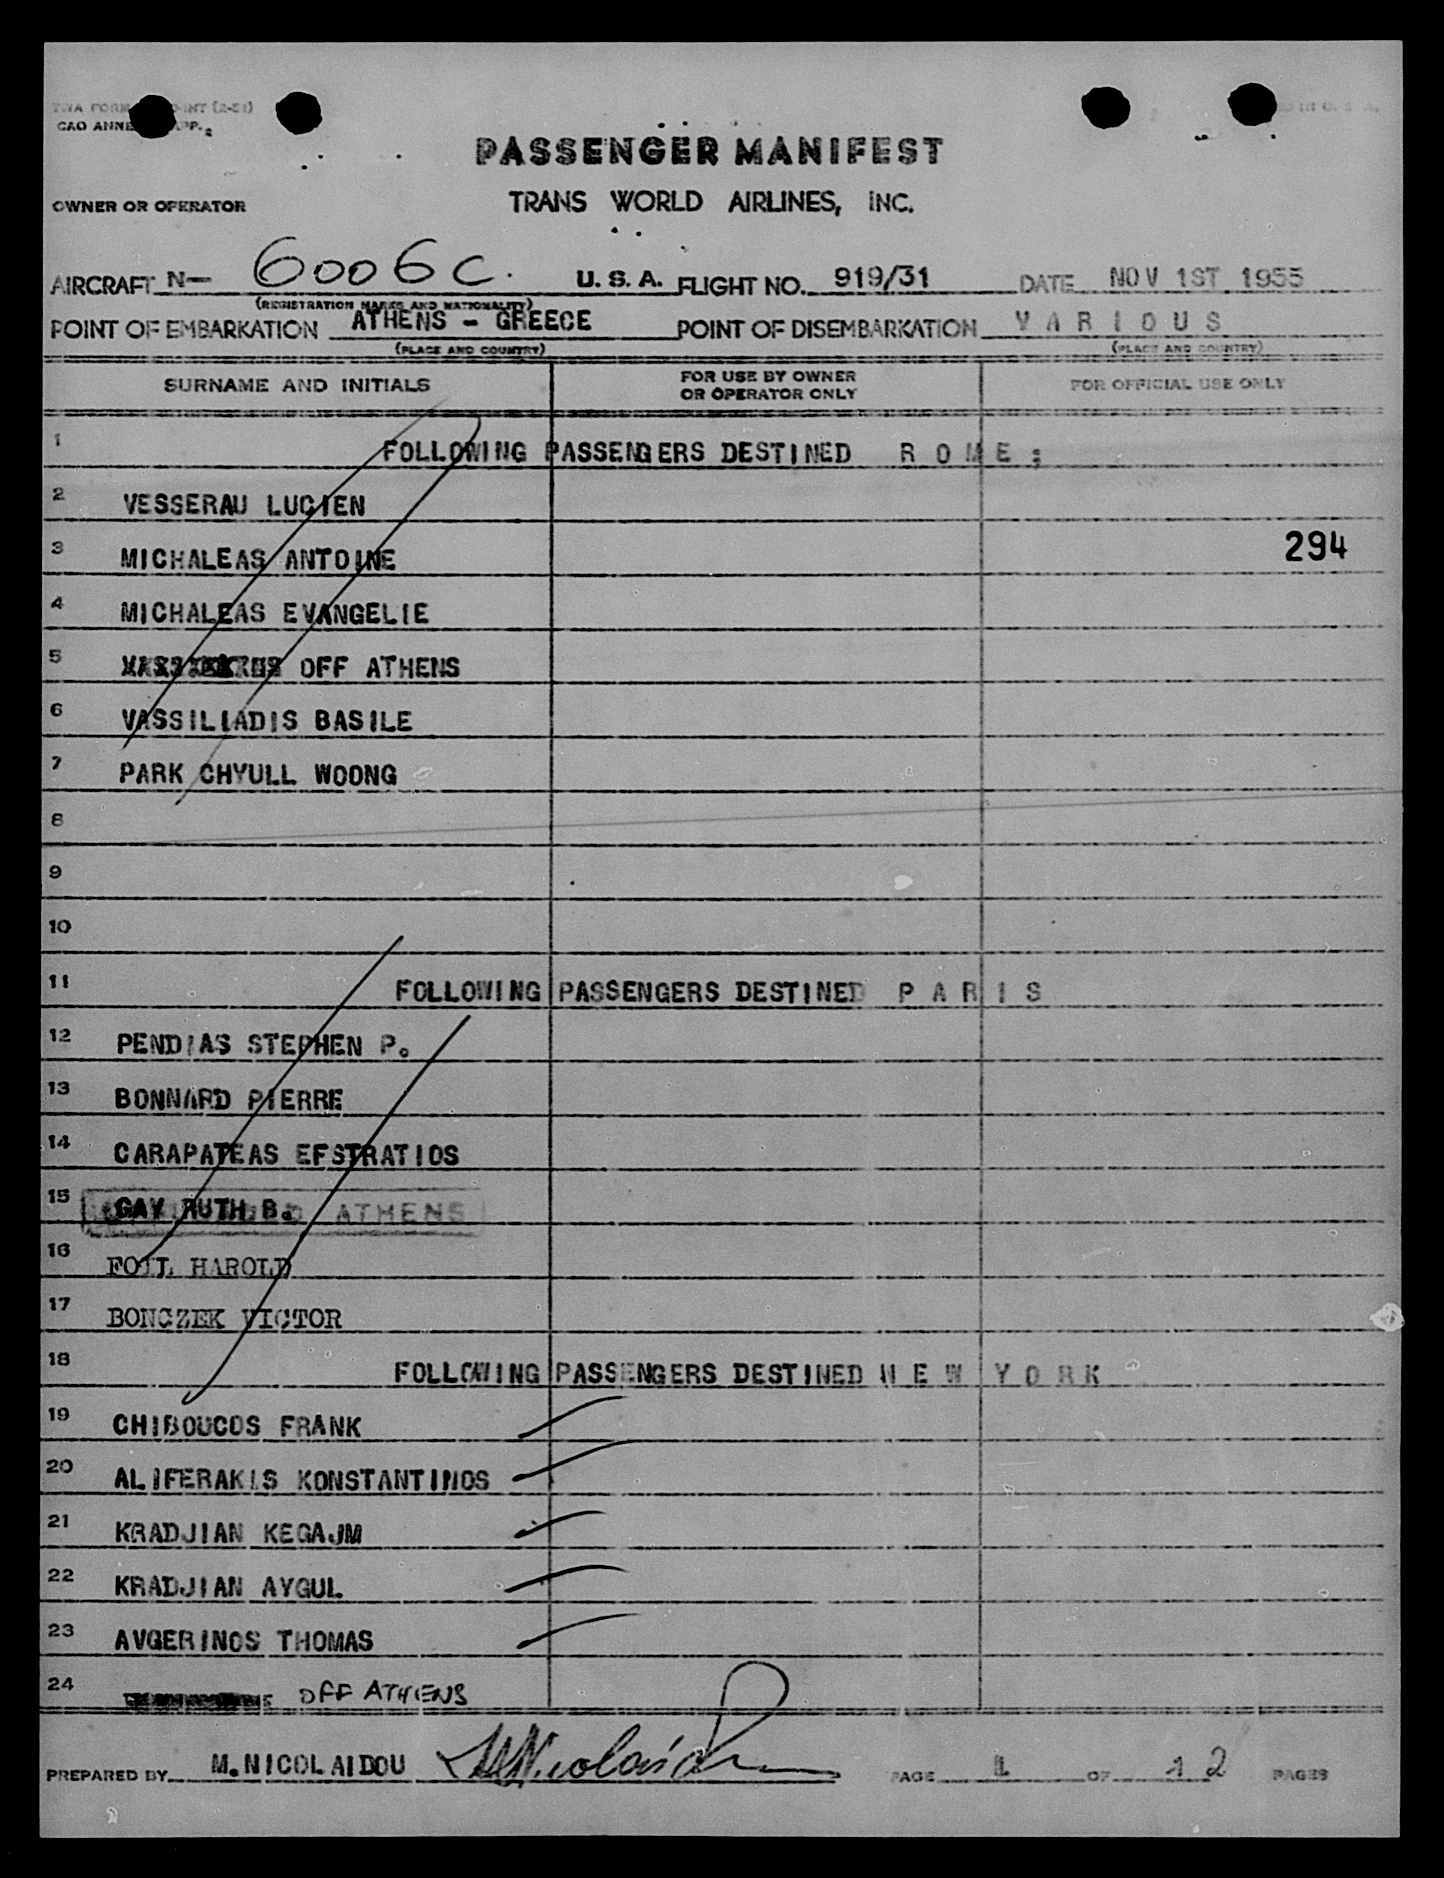 TWA FORM INT (2-51)
CAO ANNE APP. 2
IN U. S. A.
PASSENGER MANIFEST
OWNER OR OPERATOR TRANS WORLD AIRLINES, INC.
AIRCRAFT N— 6006C. U. S. A. FLIGHT NO. 919/31 DATE NOV 1ST 1955
(REGISTRATION MARKS AND NATIONALITY)
POINT OF EMBARKATION ATHENS - GREECE POINT OF DISEMBARKATION V A R I O U S
(PLACE AND COUNTRY) (PLACE AND COUNTRY)
SURNAME AND INITIALS FOR USE BY OWNER OR OPERATOR ONLY FOR OFFICIAL USE ONLY
1 FOLLOWING PASSENGERS DESTINED R O M E ;
2 VESSERAU LUCIEN
3 MICHALEAS ANTOINE 294
4 MICHALEAS EVANGELIE
5 OFF ATHENS
6 VASSILIADIS BASILE
7 PARK CHYULL WOONG
8
9
10
11 FOLLOWING PASSENGERS DESTINED P A R I S
12 PENDIAS STEPHEN P.
13 BONNARD PIERRE
14 CARAPATEAS EFSTRATIOS
15 GAY RUTH B. ATHENS
16 FOIL HAROLD
17 BONCZEK VICTOR
18 FOLLOWING PASSENGERS DESTINED N E W Y O R K
19 CHIBOUCOS FRANK
20 ALIFERAKIS KONSTANTINOS
21 KRADJIAN KEGAJM
22 KRADJIAN AYGUL
23 AVGERINOS THOMAS
24 OFF ATHENS
PREPARED BY M.NICOLAIDOU MNicolaidou PAGE 1 OF 12 PAGES